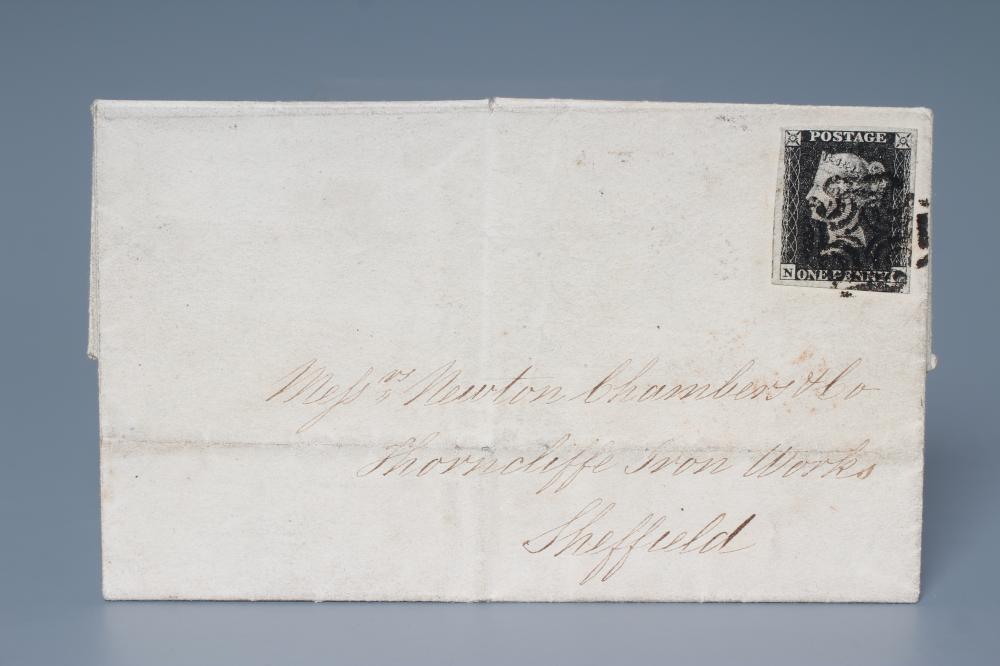 POSTAGE
N ONE PENNY
Messrs Newton Chambers & Co
Thorncliffe Iron Works
Sheffield